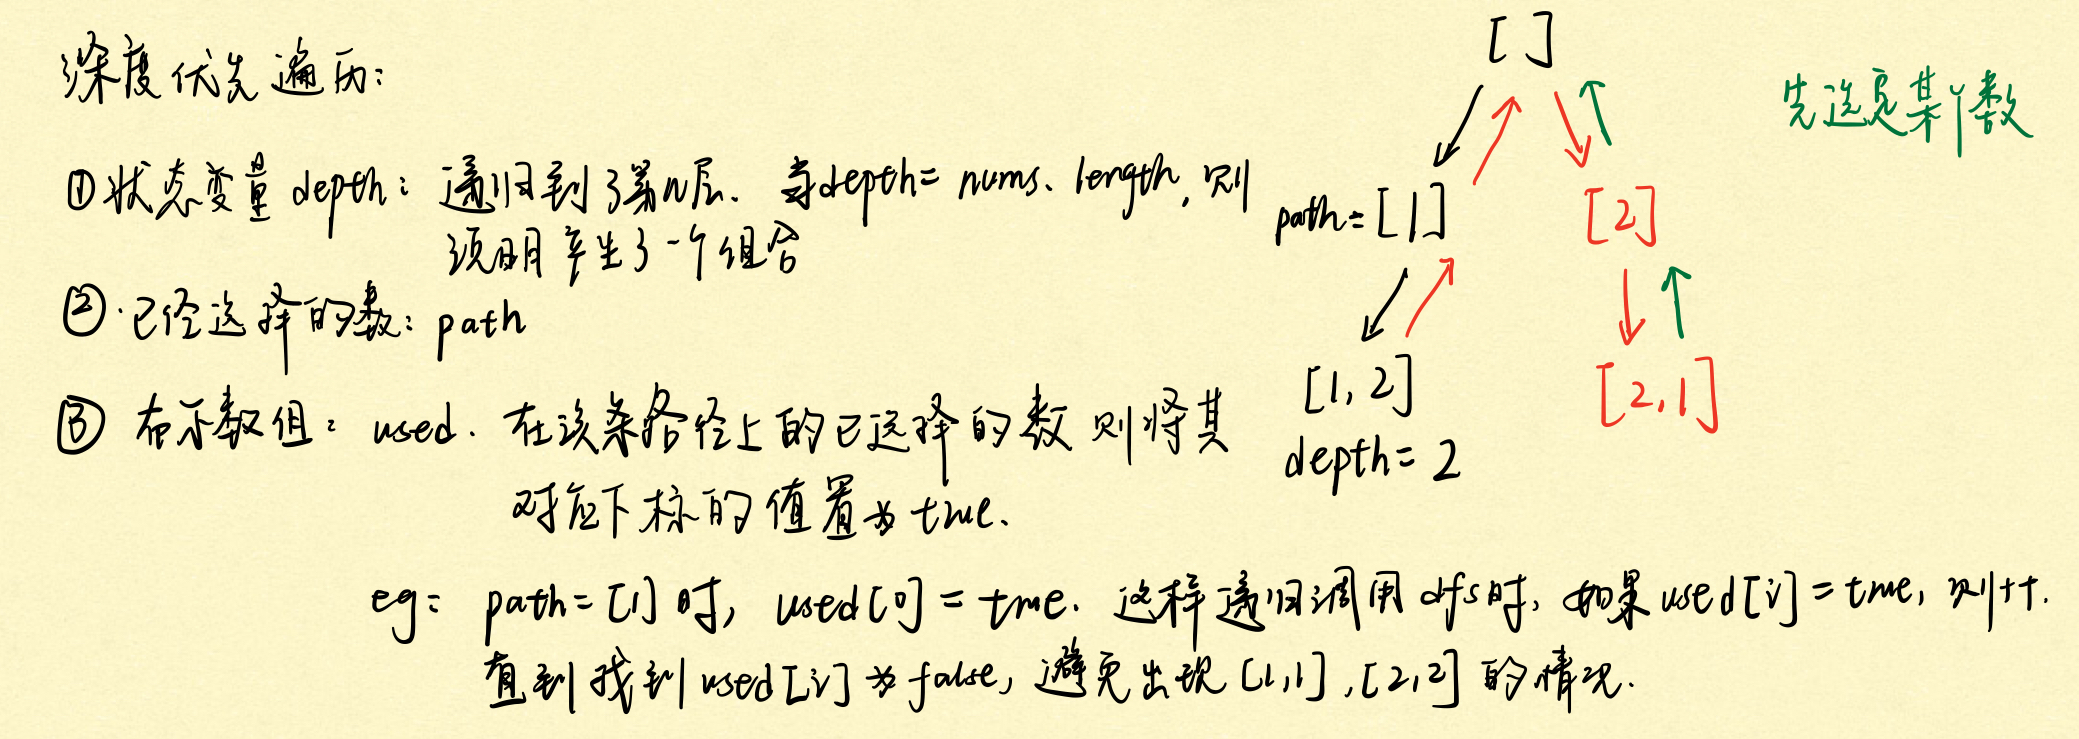 深度优先遍历:
①状态变量 depth: 递归到了第n层. 当depth= nums.length, 则
说明产生了一个组合
②.已经选择的数: path
③ 布尔数组: used. 在该条路径上的已选择的数则将其
对应下标的值置为true.
eg: path=[1]时, used[0]=true. 这样递归调用dfs时, 如果used[i]=true, 则i++.
直到找到used[i]为false, 避免出现[1,1],[2,2]的情况.
[ ]
path=[1]
[2]
[1,2]
[2,1]
depth=2
先选定某个数